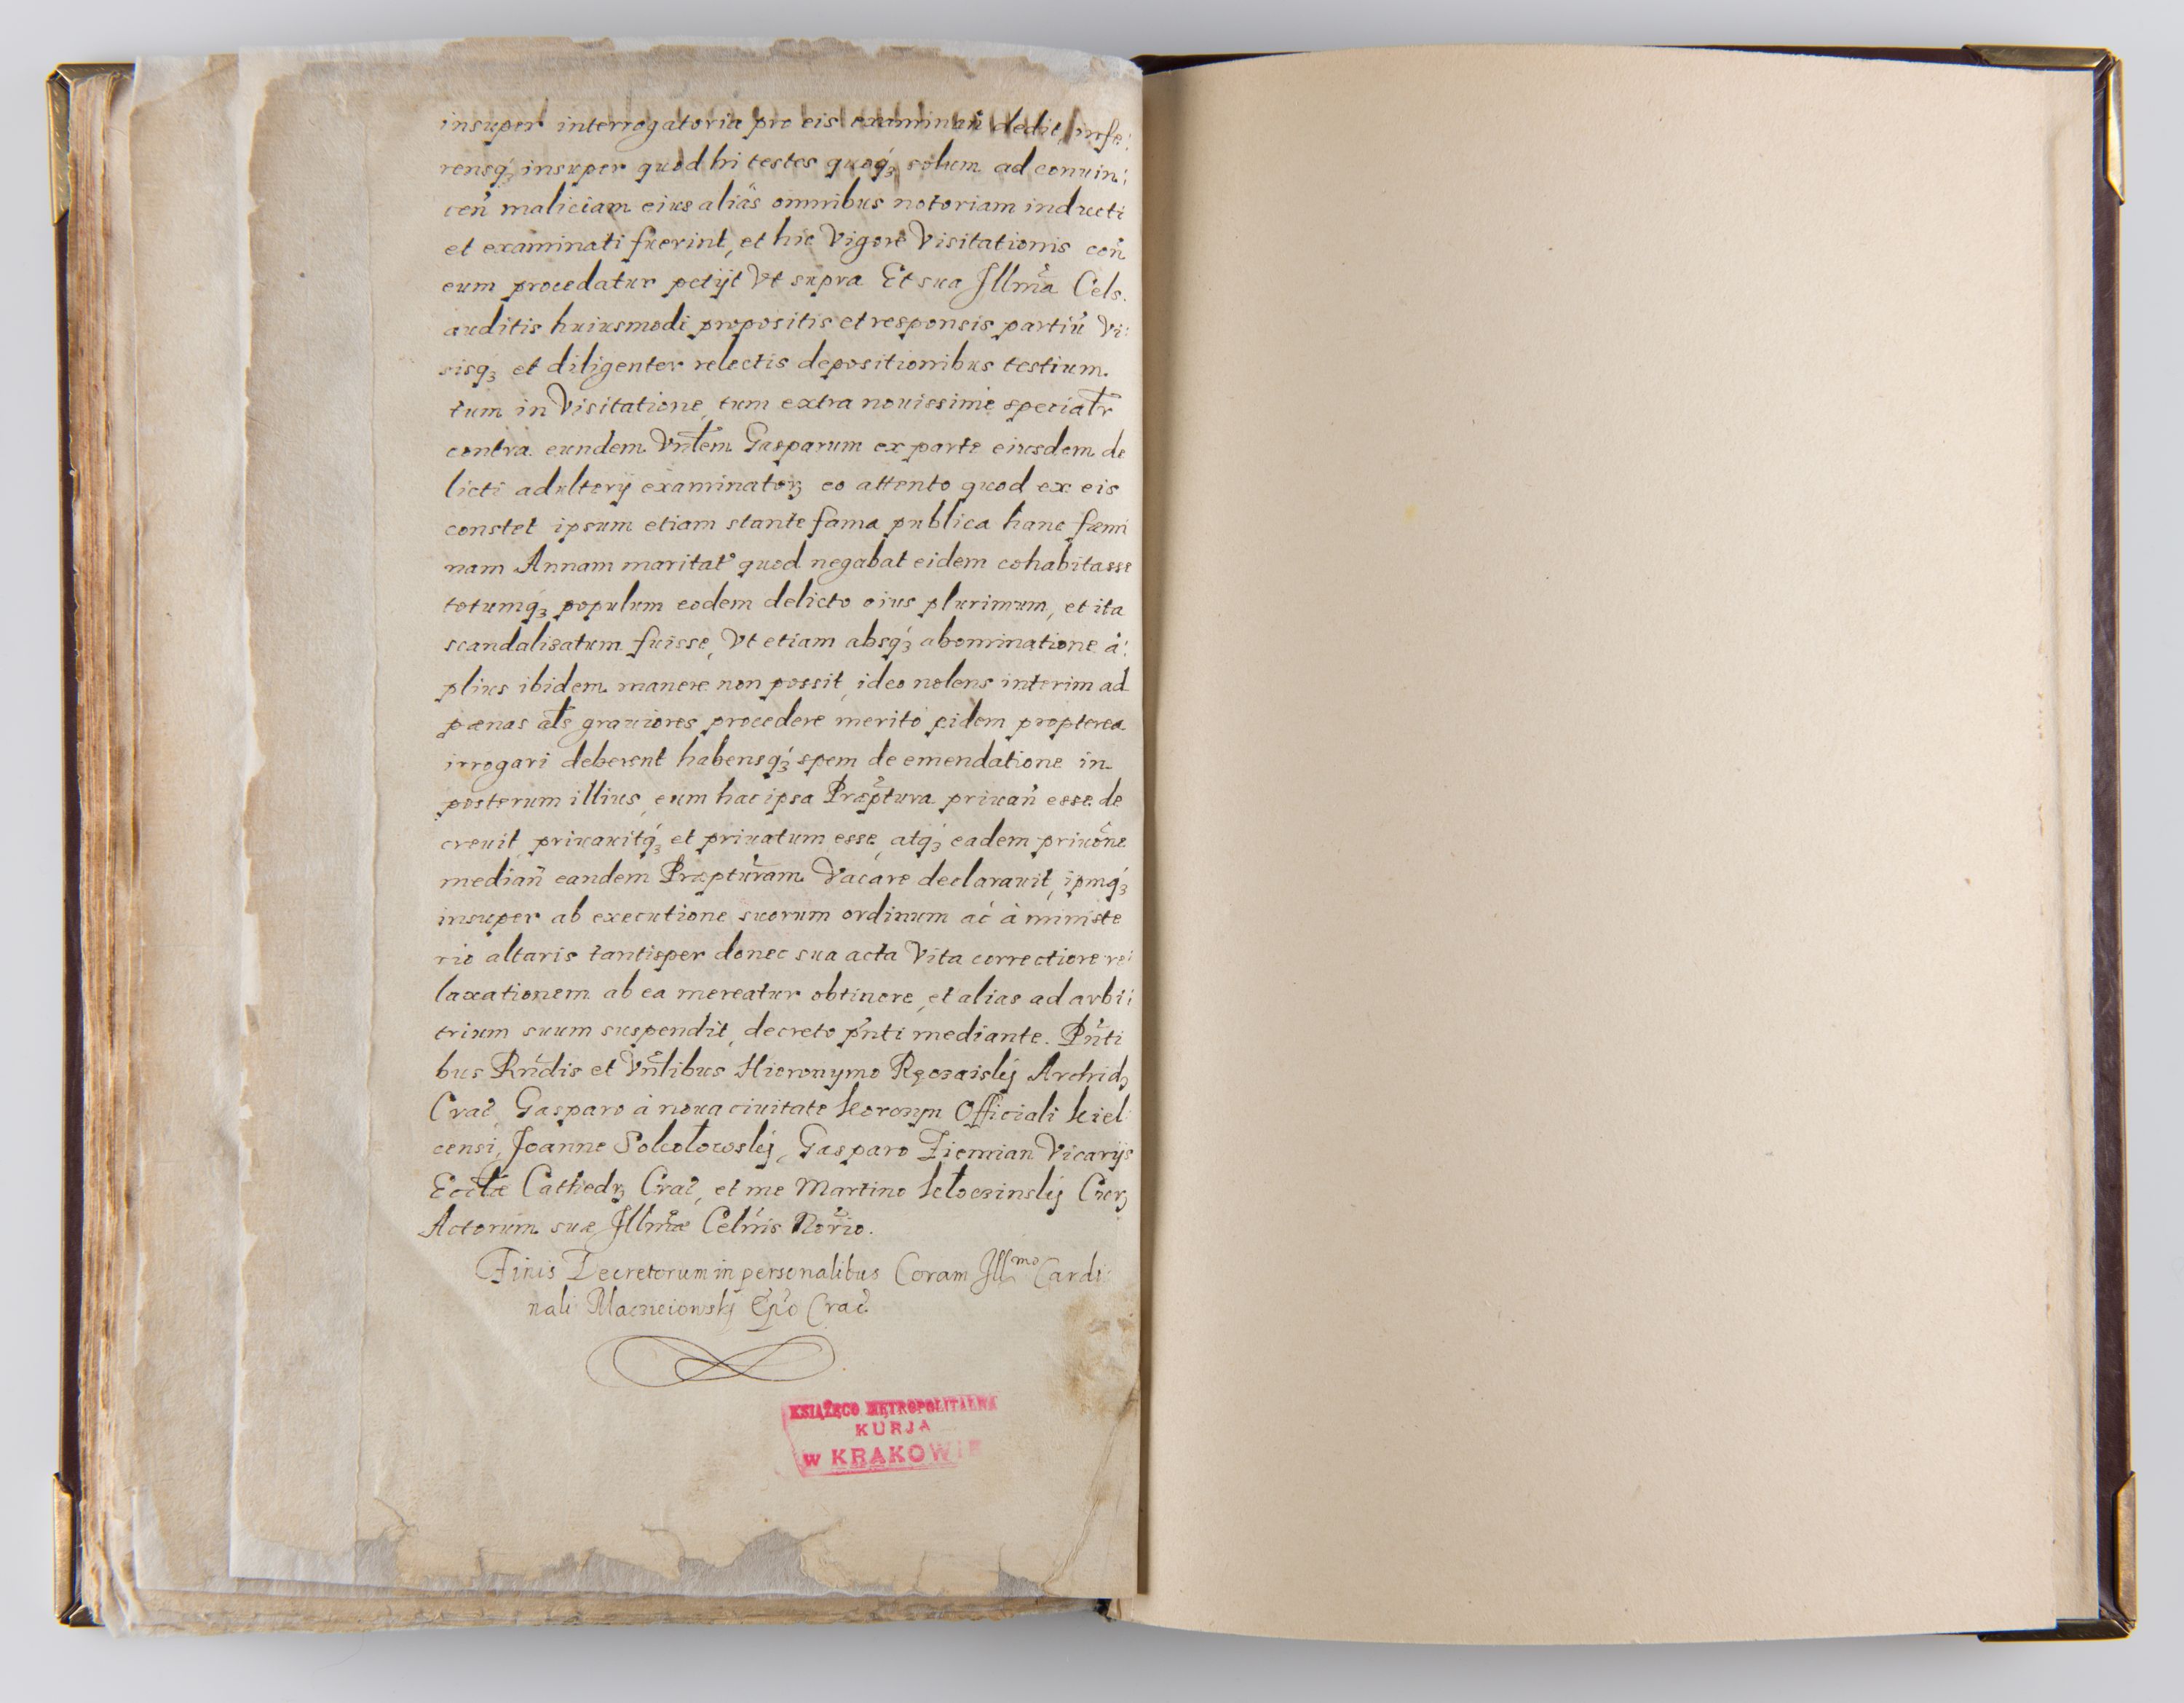 insuper interrogatoria pro eis examinañ dedit, infe:
rensq́ꝫ insuper quod hi testes quoq́ꝫ solum ad conuin:
ceñ maliciam eius aliàs omnibus notoriam inducti
et examinati fuerint, et hic Vigore Visitationis coñ
eum procedatur petijt Vt supra Et sua Jllm̃a Cels.
auditis huiusmodi propositis et responsis partiũ Vi:
sisq́ꝫ et diligenter relectis depositionibus testium.
tum in Visitatione, tum extra nouissimè speciałr
contra eundem Vnłem Gasparum ex parte eiusdem de
licti adulterij examinatorꝫ eo attento quod ex eis
constet ipsum etiam stante fama publica hanc fæmi
nam Annam maritat˜ quod negabat eidem cohabitasse
totumq́ꝫ populum eodem delicto eius plurimum, et ita
scandalisatum fuisse, Vt etiam absq́ꝫ abominatione ã:
plius ibidem manere non possit, ideo nolens interim ad
pænas ałs grauiores procedere meritò eidem propterea
irrogari deberent habensq́ꝫ spem de emendatione in
posterum illius, eum hac ipsa Præp̃tura priuañ esse de
creuit, priuauitq́ꝫ et priuatum esse, atq́ꝫ eadem priuõne
mediañ eandem Præpt̃uram Vacare declarauit, ipmq́ꝫ
insuper ab executione suorum ordinum ac à ministe
rio altaris tantisper donec sua acta Vita correctiore re:
laxationem ab ea mereatur obtinere, et alias ad arbi:
trium suum suspendit, decreto pñti mediante. Pñti
bus Rñdis et Vñlibus Hieronymo Rgozaiskj Archidꝫ
Crac̃, Gasparo à noua ciuitate Koronyn Officiali Kiel
censi, Joanne Sokołowskj, Gasparo Ziemian Vicarijs
Eccłæ Cathedrꝫ Crac̃, et me Martino Kłoczinskj Curꝫ
Actorum suæ Jllm̃æ Celñis Nor̃io.
Finis Decretorum in personalibus Coram Jllmo Cardi:
nali Macieiowskj Ep̃o Crac̃.
KSIĄŻĘCO METROPOLITALNA
KURJA
W KRAKOWIE